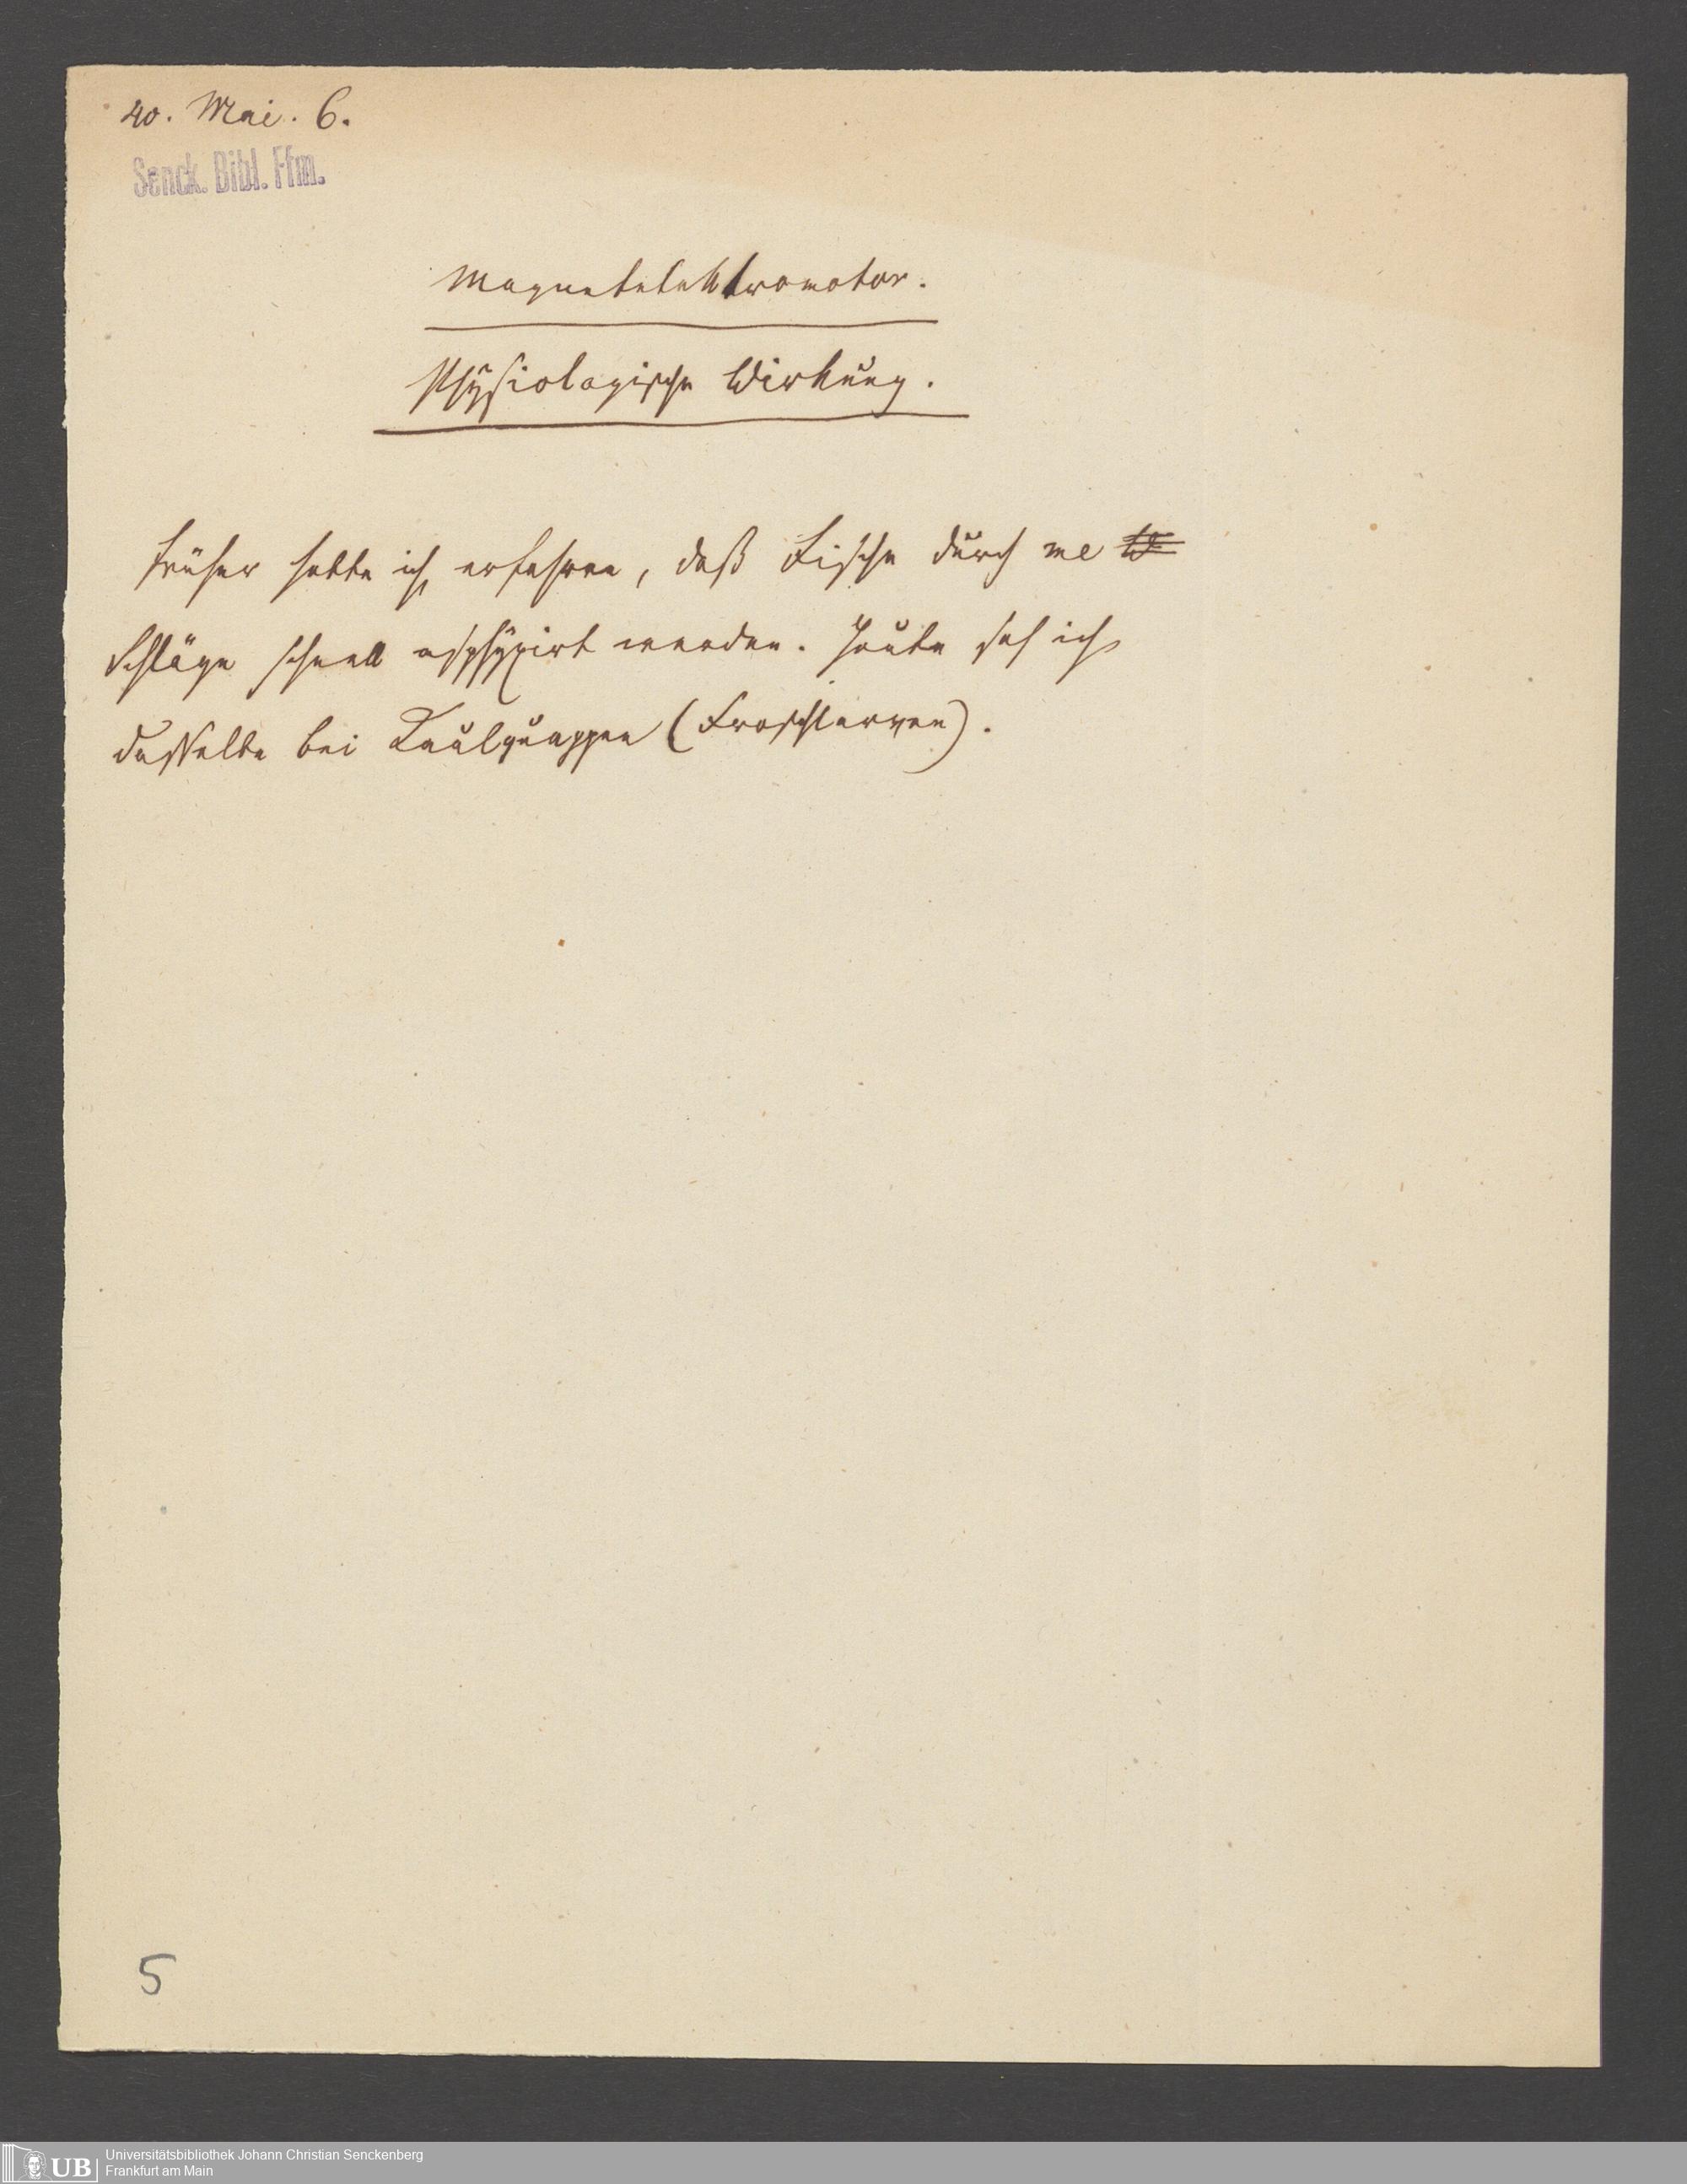 40. Mai. 6.
Senck. Bibl. Ffm.
Magnetelektromotor.
Physiologische Wirkung.
Früher hatte ich erfahren, daß Fische durch me
Schläge schnell asphyxirt werden. Heute sah ich
dasselbe bei Kaulquappen (Froschlarven).
5
UB
Universitätsbibliothek Johann Christian Senckenberg
Frankfurt am Main